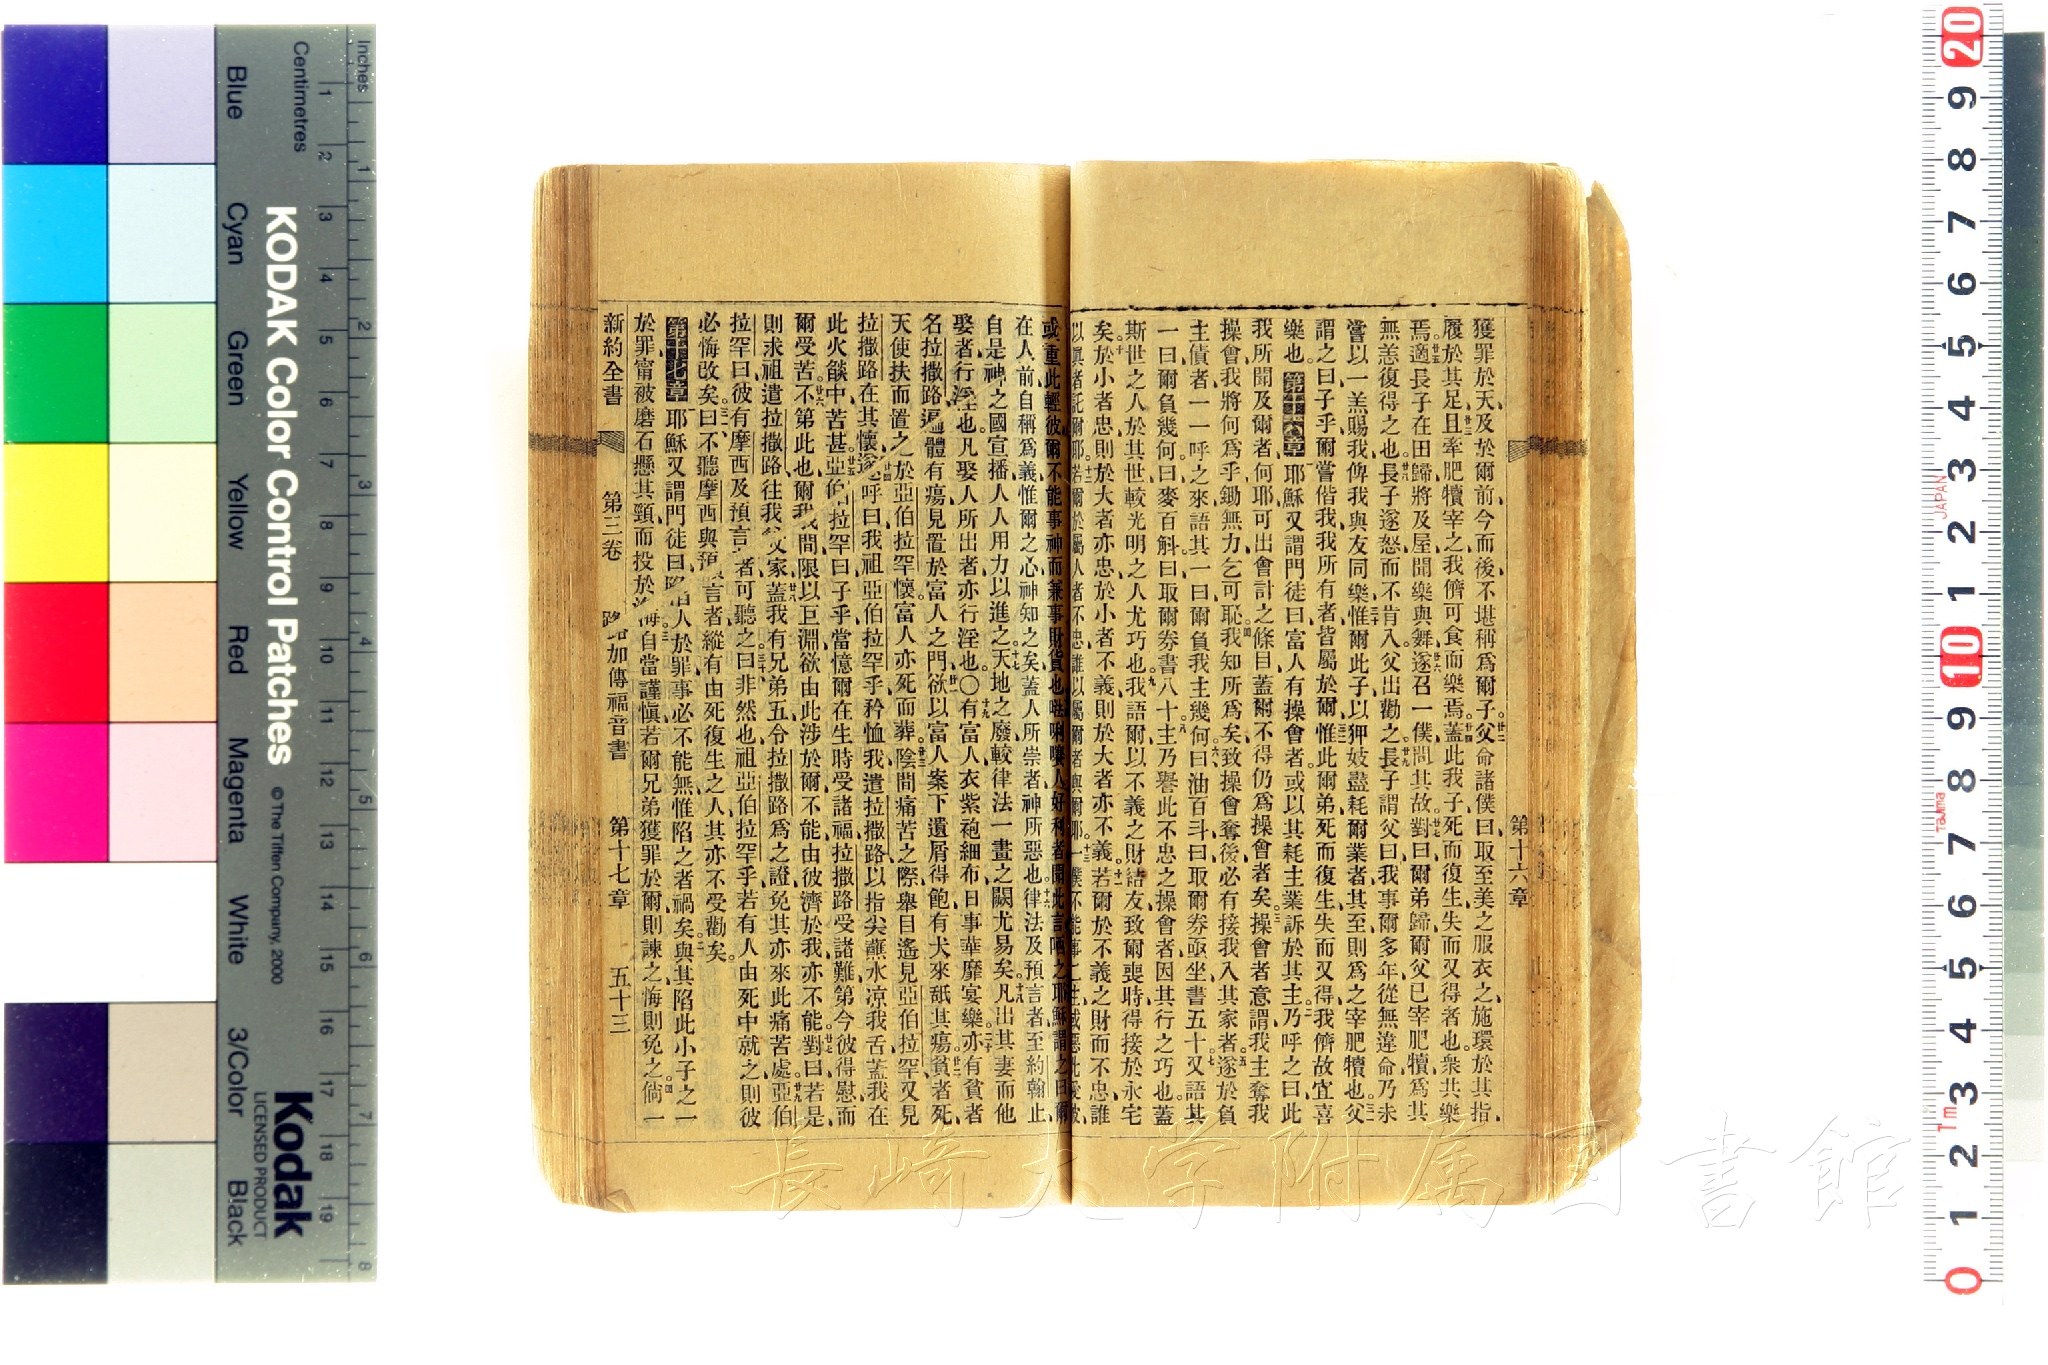 獲罪於天及於爾前今而後不堪稱爲爾子父命諸僕曰取至美之服衣之施環於其指
履於其足且牽肥犢宰之我儕可食而樂焉蓋此我子死而復生失而又得者也衆共樂
焉適長子在田歸將及屋聞樂與舞遂召一僕問其故對曰爾弟歸爾父已宰肥犢爲其
無恙復得之也長子遂怒而不肯入父出勸之長子謂父曰我事爾多年從無違命乃未
嘗以一羔賜我俾我與友同樂惟爾此子以狎妓盡耗爾業者其至則爲之宰肥犢也父
謂之曰子乎爾嘗偕我我所有者皆屬於爾惟此爾弟死而復生失而又得我儕故宜喜
樂也 第十六章 耶穌又謂門徒曰富人有操會者或以其耗主業訴於其主乃呼之曰此
我所聞及爾者何耶可出會計之條目蓋爾不得仍爲操會者矣操會者意謂我主奪我
操會我將何爲乎鋤無力乞可恥我知所爲矣致操會奪後必有接我入其家者遂於負
主債者一一呼之來語其一曰爾負我主幾何曰油百斗曰取爾券亟坐書五十又語其
一曰爾負幾何曰麥百斛曰取爾券書八十主乃譽此不忠之操會者因其行之巧也蓋
斯世之人於其世較光明之人尤巧也我語爾以不義之財結友致爾喪時得接於永宅
矣於小者忠則於大者亦忠於小者不義則於大者亦不義若爾於不義之財而不忠誰
以眞者託爾耶若爾於屬人者不忠誰以屬爾者與爾耶一僕不能事二主或惡此愛彼
或重此輕彼爾不能事神而兼事財貨也𠵽唎㘔人好利者聞此言哂之耶穌謂之曰爾
在人前自稱爲義惟爾之心神知之矣蓋人所崇者神所惡也律法及預言者至約翰止
自是神之國宣播人人用力以進之天地之廢較律法一畫之闕尤易矣凡出其妻而他
娶者行淫也凡娶人所出者亦行淫也〇有富人衣紫袍細布日事華靡宴樂亦有貧者
名拉撒路遍體有瘍見置於富人之門欲以富人案下遺屑得飽有犬來舐其瘍貧者死
天使扶而置之於亞伯拉罕懷富人亦死而葬陰間痛苦之際舉目遙見亞伯拉罕又見
拉撒路在其懷遂呼曰我祖亞伯拉罕乎矜恤我遣拉撒路以指尖蘸水凉我舌蓋我在
此火燄中苦甚亞伯拉罕曰子乎當憶爾在生時受諸福拉撒路受諸難第今彼得慰而
爾受苦不第此也爾我間限以巨淵欲由此涉於爾不能由彼濟於我亦不能對曰若是
則求祖遣拉撒路往我父家蓋我有兄弟五令拉撒路爲之證免其亦來此痛苦處亞伯
拉罕曰彼有摩西及預言者可聽之曰非然也祖亞伯拉罕乎若有人由死中就之則彼
必悔改矣曰不聽摩西與預言者縱有由死復生之人其亦不受勸矣
第十七章 耶穌又謂門徒曰陷人於罪事必不能無惟陷之者禍矣與其陷此小子之一
於罪甯被磨石懸其頸而投於海自當謹愼若爾兄弟獲罪於爾則諫之悔則免之倘一
新約全書 第三卷 路加傳福音書 第十七章 五十三
第十六章
長崎大学附属図書館
KODAK Color Control Patches
© The Tiffen Company, 2000
Kodak
LICENSED PRODUCT
Inches
Centimetres
Blue
Cyan
Green
Yellow
Red
Magenta
White
3/Color
Black
1 2 3 4 5 6 7 8 9 10 11 12 13 14 15 16 17 18 19
1 2 3 4 5 6 7 8
20 9 8 7 6 5 4 3 2 1 10 9 8 7 6 5 4 3 2 1 0
JAPAN
Tajima
Tm